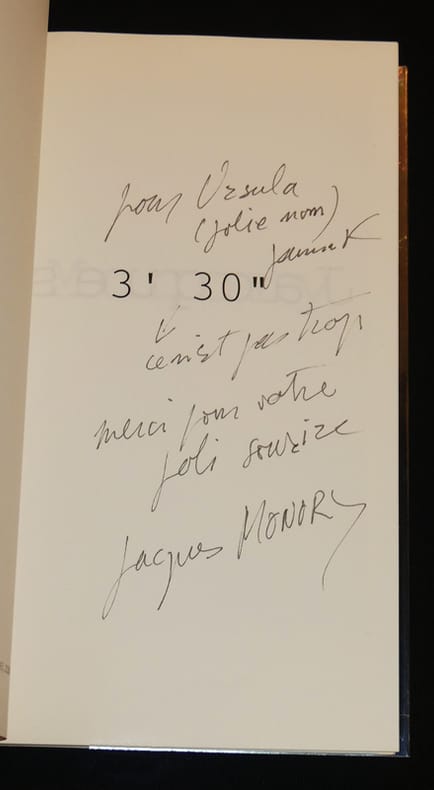 pour Ursula
(jolie nom)
3' 30"
ce n'est pas trop
merci pour votre
joli sourire
Jacques MONORY